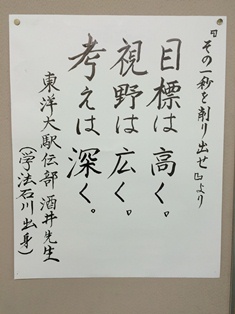 『その一秒を削り出せ』より
目標は高く。
視野は広く。
考えは深く。
東洋大駅伝部 酒井先生
(学法石川出身)